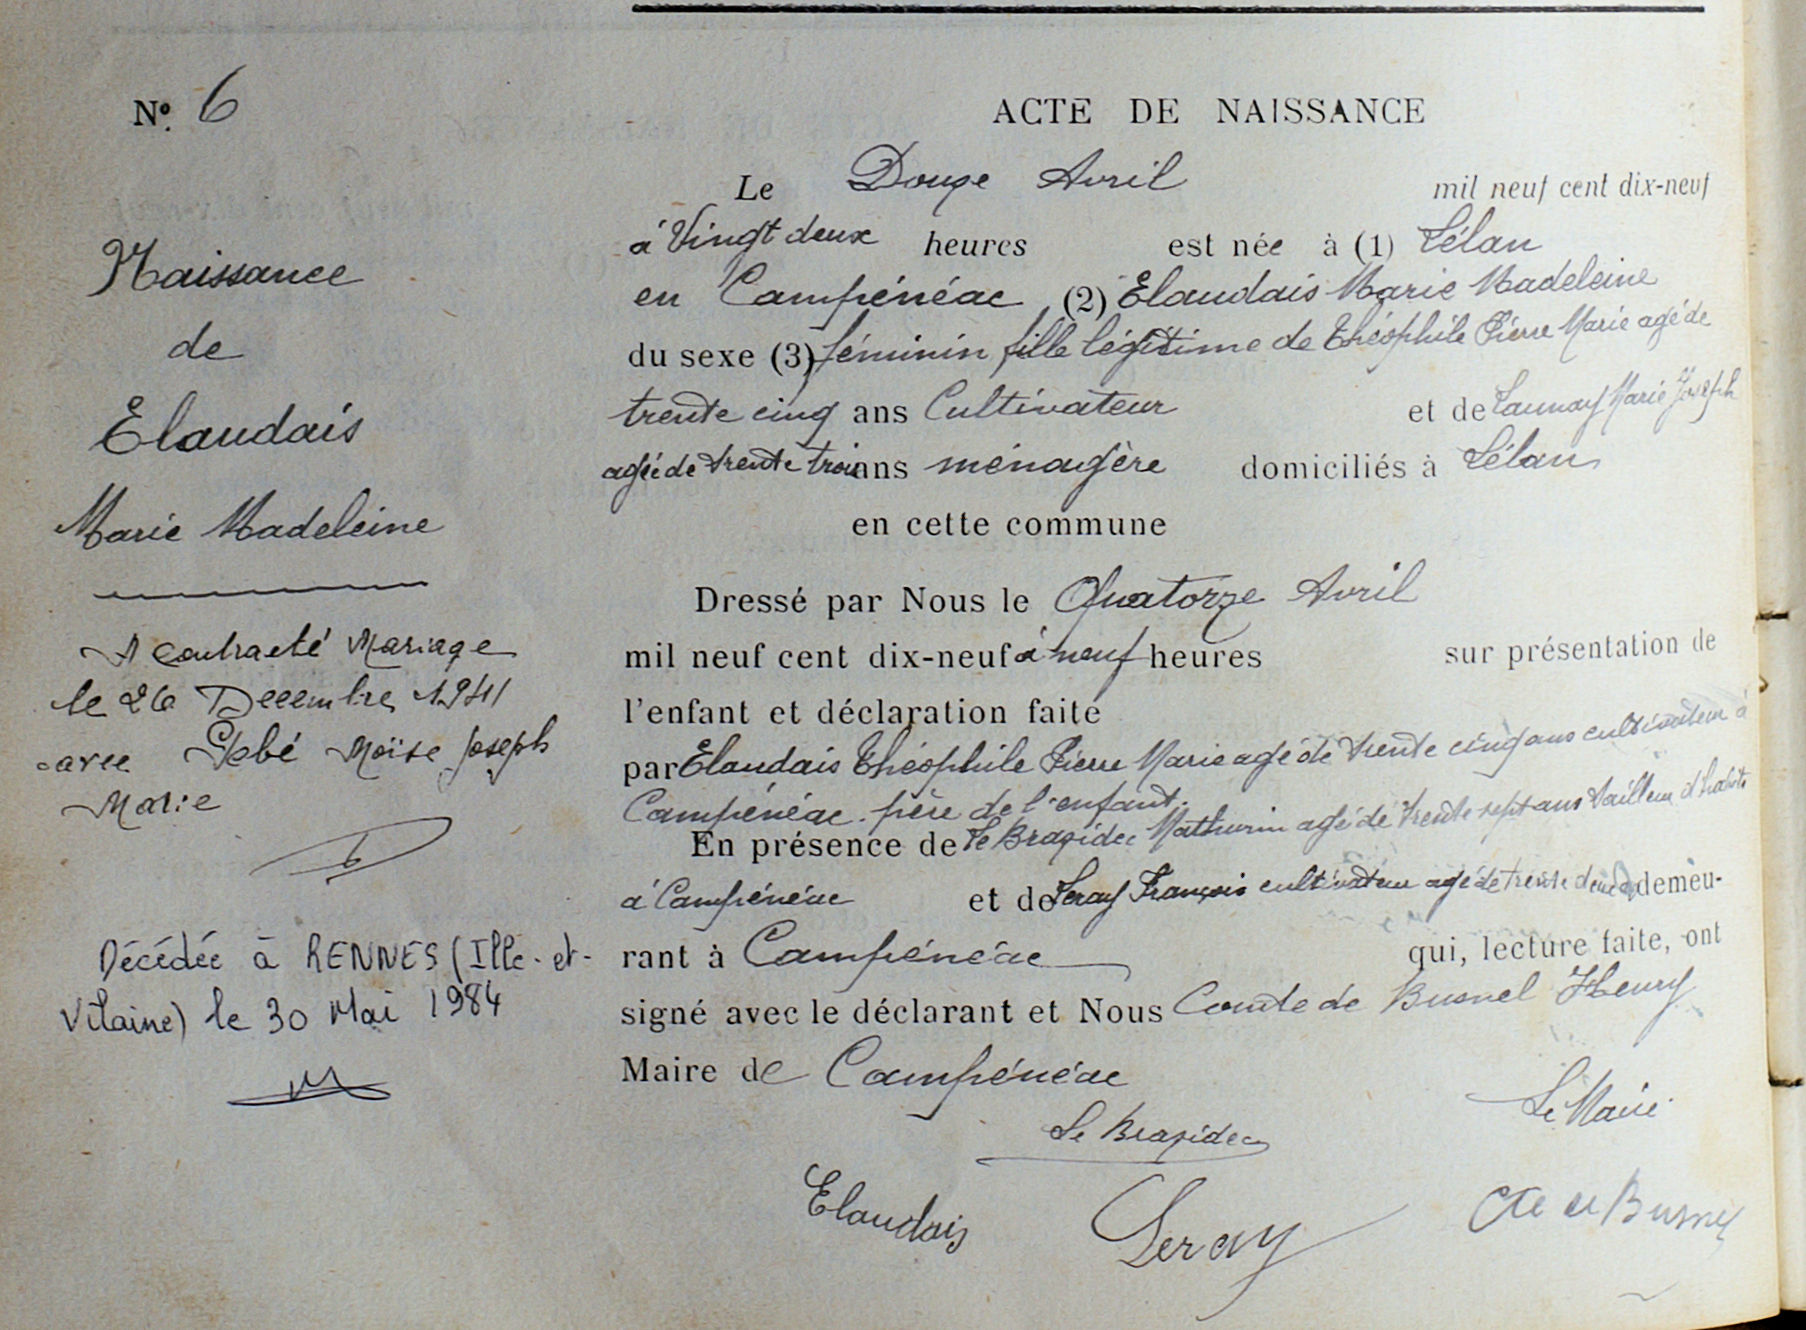 N° 6
Naissance
de
Elaudais
Marie Madeleine
A contracté Mariage
le 26 Décembre 1941
avec Jebé Moïse Joseph
Marie
Décédée à RENNES (Ille-et-
Vilaine) le 30 Mai 1984
ACTE DE NAISSANCE
Le Douze Avril mil neuf cent dix-neuf
à Vingt deux heures est née à (1) Lélan
en Campénéac (2) Elaudais Marie Madeleine
du sexe (3) féminin fille légitime de Théophile Pierre Marie agé de
trente cinq ans Cultivateur et de Launay Marie Joseph
agée de trente trois ans ménagère domiciliés à Lélan
en cette commune
Dressé par Nous le Quatorze Avril
mil neuf cent dix-neuf à neuf heures sur présentation de
l'enfant et déclaration faite
par Elaudais Théophile Pierre Marie agé de trente cinq ans cultivateur à
Campénéac père de l'enfant.
En présence de Le Brazidec Mathurin agé de trente sept ans tailleur d'habits
à Campénéac et de Leray François cultivateur agé de trente deux demeu-
rant à Campénéac qui, lecture faite, ont
signé avec le déclarant et Nous Comte de Busnel Henry
Maire de Campénéac
Le Brazidec
Le Maire
Elaudais
Leray
Cte de Busnel